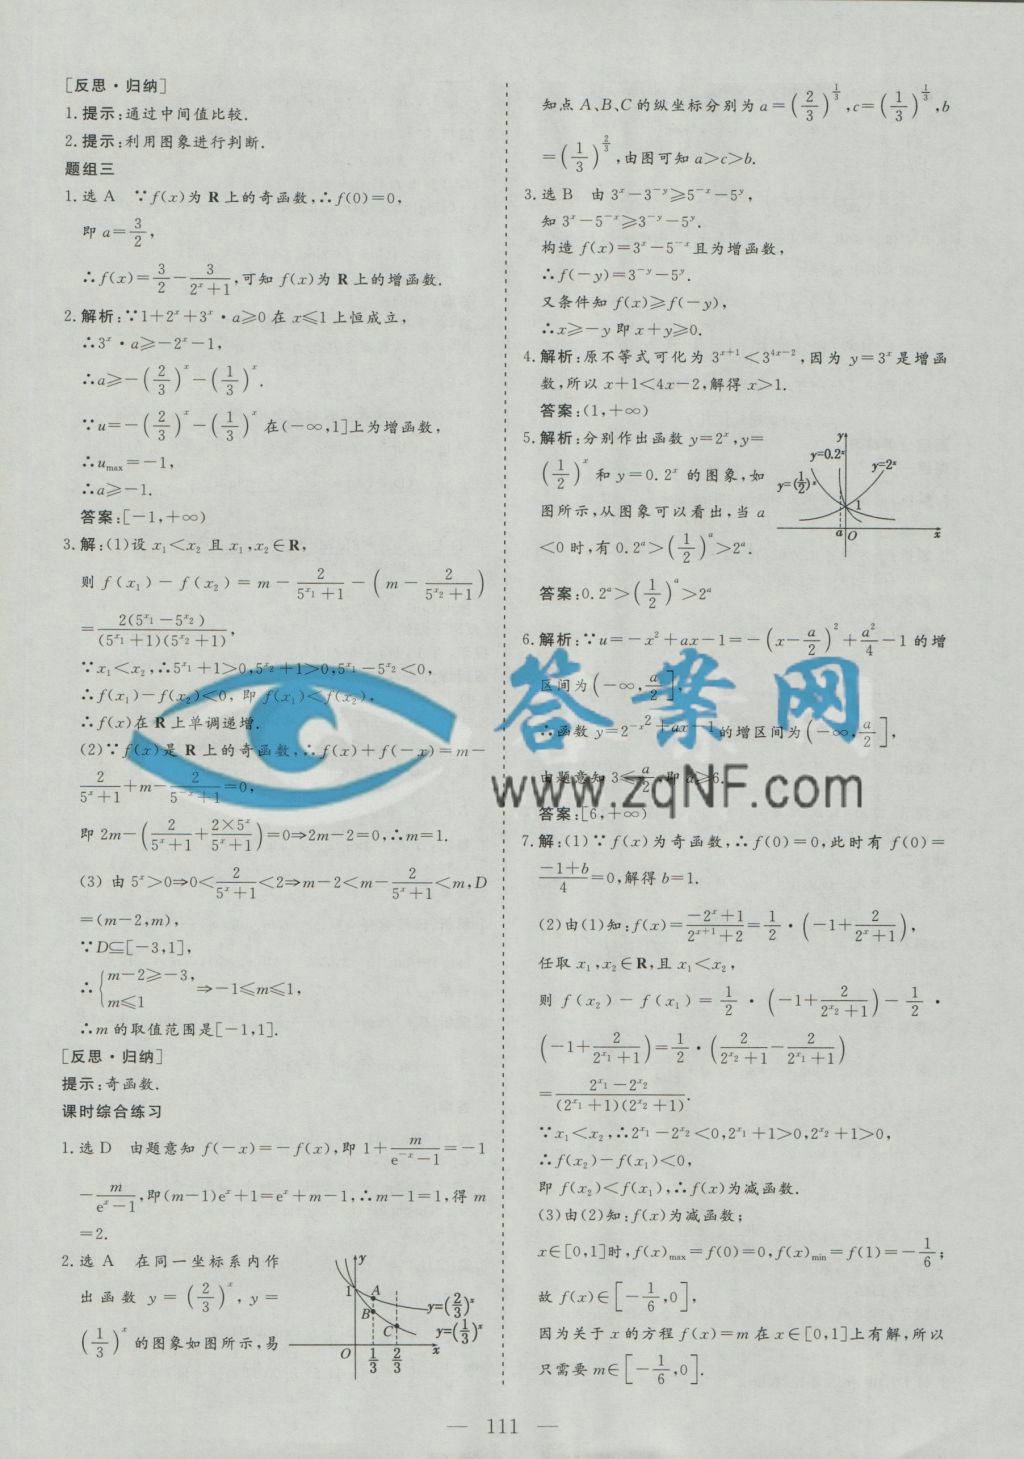 [反思·归纳]
1.提示:通过中间值比较.
2.提示:利用图象进行判断.
题组三
1.选 A  ∵f(x)为 R 上的奇函数,∴f(0)=0,
即 a=3/2,
∴f(x)=3/2-3/(2^x+1),可知 f(x)为 R 上的增函数.
2.解析:∵1+2^x+3^x·a≥0 在 x≤1 上恒成立,
∴3^x·a≥-2^x-1,
∴a≥-(2/3)^x-(1/3)^x.
∵u=-(2/3)^x-(1/3)^x 在(-∞,1]上为增函数,
∴u_max=-1,
∴a≥-1.
答案:[-1,+∞)
3.解:(1)设 x₁<x₂ 且 x₁,x₂∈R,
则 f(x₁)-f(x₂)=m-2/(5^x₁+1)-(m-2/(5^x₂+1))
=2(5^x₁-5^x₂)/((5^x₁+1)(5^x₂+1)),
∵x₁<x₂,∴5^x₁+1>0,5^x₂+1>0,5^x₁-5^x₂<0,
∴f(x₁)-f(x₂)<0,即 f(x₁)<f(x₂),
∴f(x)在 R 上单调递增.
(2)∵f(x)是 R 上的奇函数,∴f(x)+f(-x)=m-
2/(5^x+1)+m-2/(5^-x+1)=0,
即 2m-(2/(5^x+1)+2×5^x/(5^x+1))=0⇒2m-2=0,∴m=1.
(3)由 5^x>0⇒0<2/(5^x+1)<2⇒m-2<m-2/(5^x+1)<m,D
=(m-2,m),
∵D⊆[-3,1],
∴{m-2≥-3, m≤1 ⇒-1≤m≤1,
∴m 的取值范围是[-1,1].
[反思·归纳]
提示:奇函数.
课时综合练习
1.选 D  由题意知 f(-x)=-f(x),即 1+m/(e^-x-1)=-1
-m/(e^x-1),即(m-1)e^x+1=e^x+m-1,∴m-1=1,得 m
=2.
2.选 A  在同一坐标系内作
出函数 y=(2/3)^x,y=
(1/3)^x 的图象如图所示,易
y
1
A
B
C
y=(2/3)^x
y=(1/3)^x
O
1/3
2/3
x
知点 A、B、C 的纵坐标分别为 a=(2/3)^(1/3),c=(1/3)^(1/3),b
=(1/3)^(2/3),由图可知 a>c>b.
3.选 B  由 3^x-3^-y≥5^-x-5^y,
知 3^x-5^-x≥3^-y-5^y.
构造 f(x)=3^x-5^-x且为增函数,
∴f(-y)=3^-y-5^y.
又条件知 f(x)≥f(-y),
∴x≥-y 即 x+y≥0.
4.解析:原不等式可化为 3^(x+1)<3^(4x-2),因为 y=3^x 是增函
数,所以 x+1<4x-2,解得 x>1.
答案:(1,+∞)
5.解析:分别作出函数 y=2^x,y=
(1/2)^x 和 y=0.2^x 的图象,如
图所示,从图象可以看出,当 a
<0 时,有 0.2^a>(1/2)^a>2^a.
y
y=0.2^x
y=2^x
y=(1/2)^x
1
a
O
x
答案:0.2^a>(1/2)^a>2^a
6.解析:∵u=-x²+ax-1=-(x-a/2)²+a²/4-1 的增
区间为(-∞,a/2],
∴函数 y=2^(-x²+ax-1)的增区间为(-∞,a/2],
由题意知 3≤a/2,即 a≥6.
答案:[6,+∞)
7.解:(1)∵f(x)为奇函数,∴f(0)=0,此时有 f(0)=
(-1+b)/4=0,解得 b=1.
(2)由(1)知:f(x)=(-2^x+1)/(2^(x+1)+2)=1/2·(-1+2/(2^x+1)),
任取 x₁,x₂∈R,且 x₁<x₂,
则 f(x₂)-f(x₁)=1/2·(-1+2/(2^x₂+1))-1/2·
(-1+2/(2^x₁+1))=1/2·(2/(2^x₂+1)-2/(2^x₁+1))
=(2^x₁-2^x₂)/((2^x₁+1)(2^x₂+1)).
∵x₁<x₂,∴2^x₁-2^x₂<0,2^x₁+1>0,2^x₂+1>0,
∴f(x₂)-f(x₁)<0,
即 f(x₂)<f(x₁),∴f(x)为减函数.
(3)由(2)知:f(x)为减函数;
x∈[0,1]时,f(x)_max=f(0)=0,f(x)_min=f(1)=-1/6;
故 f(x)∈[-1/6,0],
因为关于 x 的方程 f(x)=m 在 x∈[0,1]上有解,所以
只需要 m∈[-1/6,0].
答案网
www.zqNF.com
— 111 —